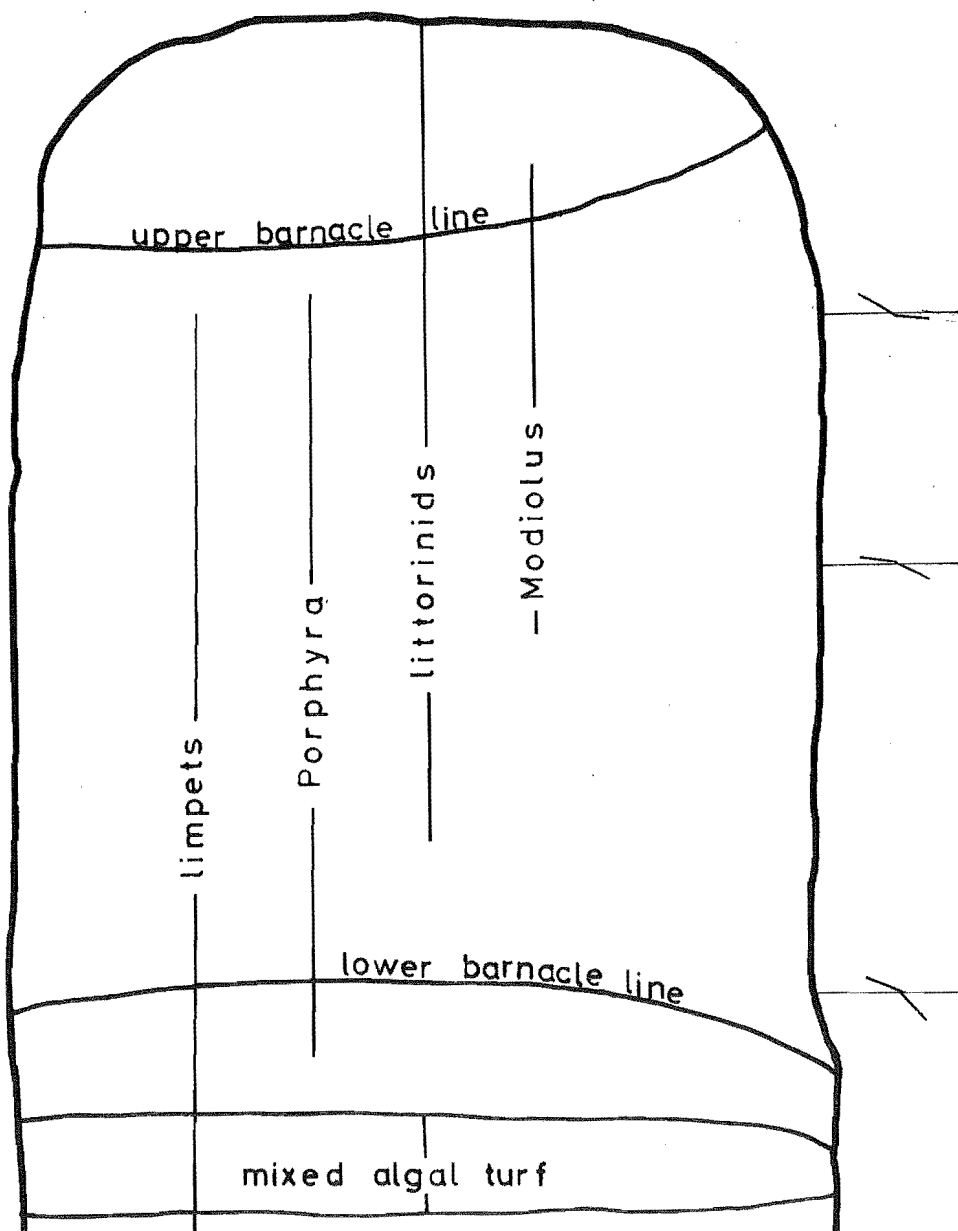 upper barnacle line
limpets
Porphyra
littorinids
Modiolus
lower barnacle line
mixed algal turf